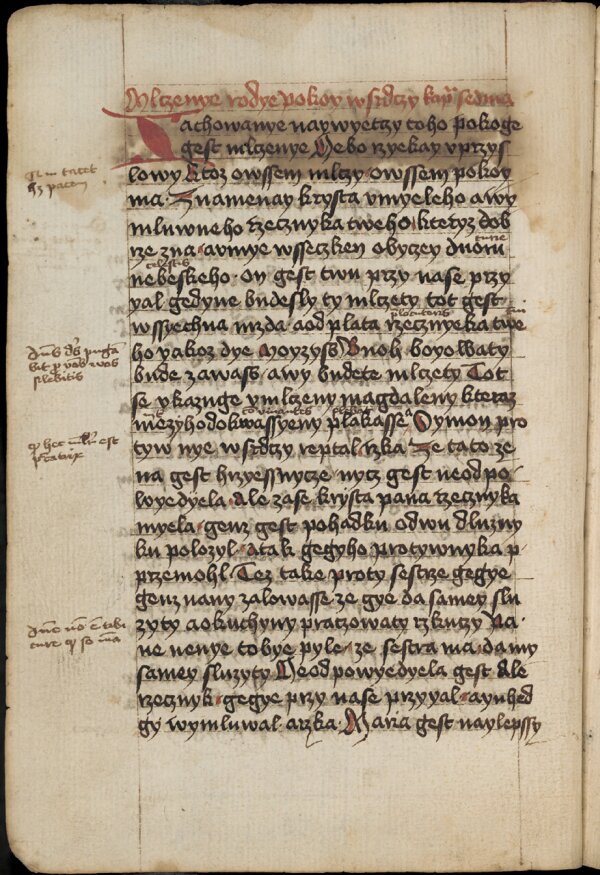 Mlczenye rodye pokoy w srdczy kap sedma
Zachowanye naywyetczy toho pokoge
gest mlczenye Nebo rzyekay vprzys
lowy Ktoz owssem mlczy owssem pokoy
ma· Znamenay krysta vmyeleho a wy
mluwneho rzecznyka tweho· kteryz dob
rze zna· a vmye wsseczken obyczey dworu
nebeskeho· on gest twu przy nase przy
yal gedyne budesly ty mlczety tot gest
wssyechna mzda a od plata rzecznyeka twe
ho yakoz dye Moyzyss Buoh boyowaty
bude za wass· a wy budete mlczety Tot
se vkazuge v mlczeny magdaleny kteraz
mezy hodokwassyeny plakasse Symon pro
tyw nye w srdczy reptal· rzka Ze tato ze
na gest hrzyessnycze· nycz gest neodpo
wyedyela· Ale zase krysta pana rzecznyka
myela· genz gest pohadku o dwu dluzny
ku polozyl· A tak gegyho protywnyka p
przemohl· Tez take proty sestrze gegye
genz nany zalowasse ze gye da samey slu
zyty a o kuchyny praczowaty rzkuczy Pa
ne nenye tobye pyle· ze sestra ma· da my
samey sluzyty Neodpowyedyela gest Ale
rzecznyk gegye przy nase przyyal· a ynhed
gy wymluwal· a rzka· Maria gest naylepssy